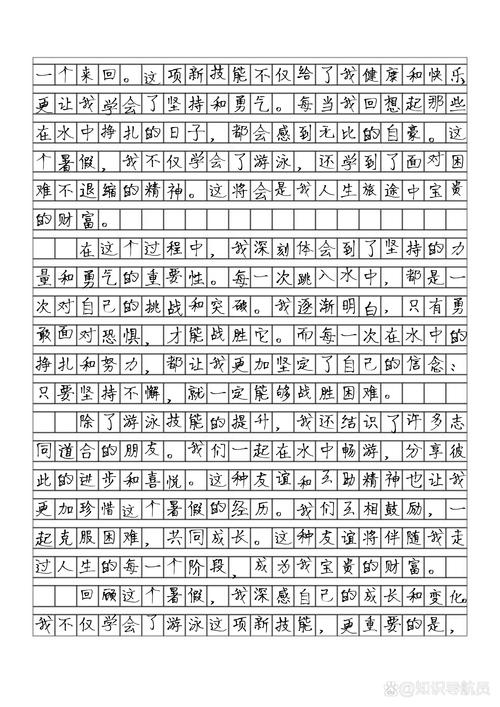 一个来回。这项新技能不仅给了我健康和快乐
更让我学会了坚持和勇气。每当我回想起那些
在水中挣扎的日子，都会感到无比的自豪。这
个暑假，我不仅学会了游泳，还学到了面对困
难不退缩的精神。这将会是我人生旅途中宝贵
的财富。
在这个过程中，我深刻体会到了坚持的力
量和勇气的重要性。每一次跳入水中，都是一
次对自己的挑战和突破。我逐渐明白，只有勇
敢面对恐惧，才能战胜它。而每一次在水中的
挣扎和努力，都让我更加坚定了自己的信念：
只要坚持不懈，就一定能够战胜困难。
除了游泳技能的提升，我还结识了许多志
同道合的朋友。我们一起在水中畅游，分享彼
此的进步和喜悦。这种友谊和互助精神也让我
更加珍惜这个暑假的经历。我们互相鼓励，一
起克服困难，共同成长。这种友谊将伴随我走
过人生的每一个阶段，成为我宝贵的财富。
回顾这个暑假，我深感自己的成长和变化。
我不仅学会了游泳这项新技能，更重要的是，
@知识导航员